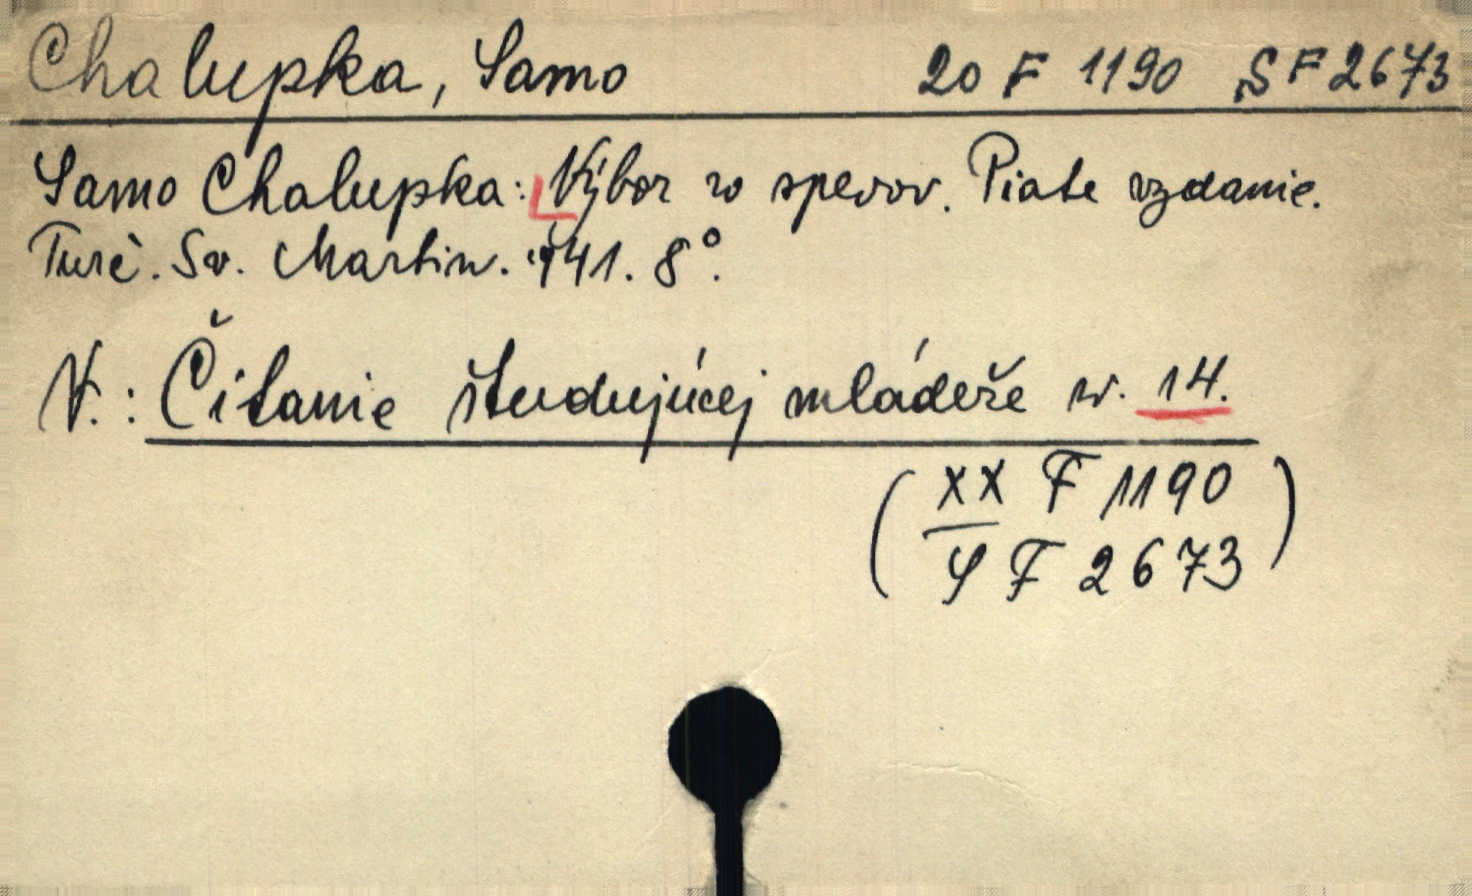 Chalupka, Samo 20 F 1190 SF 2673
Samo Chalupka: Výbor zo spevov. Piate vydanie.
Turč. Sv. Martin. 1941. 8°.
V.: Čítanie študujúcej mládeže sv. 14.
(XX F 1190
S F 2673)